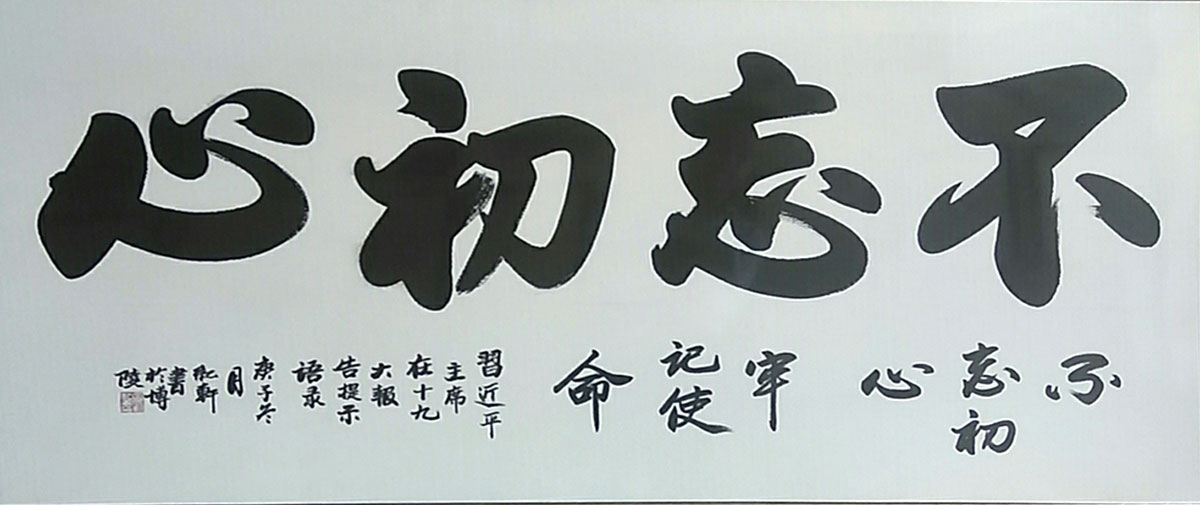 不忘初心
不
忘初
心
牢
记使
命
習近平
主席
在十九
大報
告提示
语录
庚子冬
月
軒
書
於博
陵